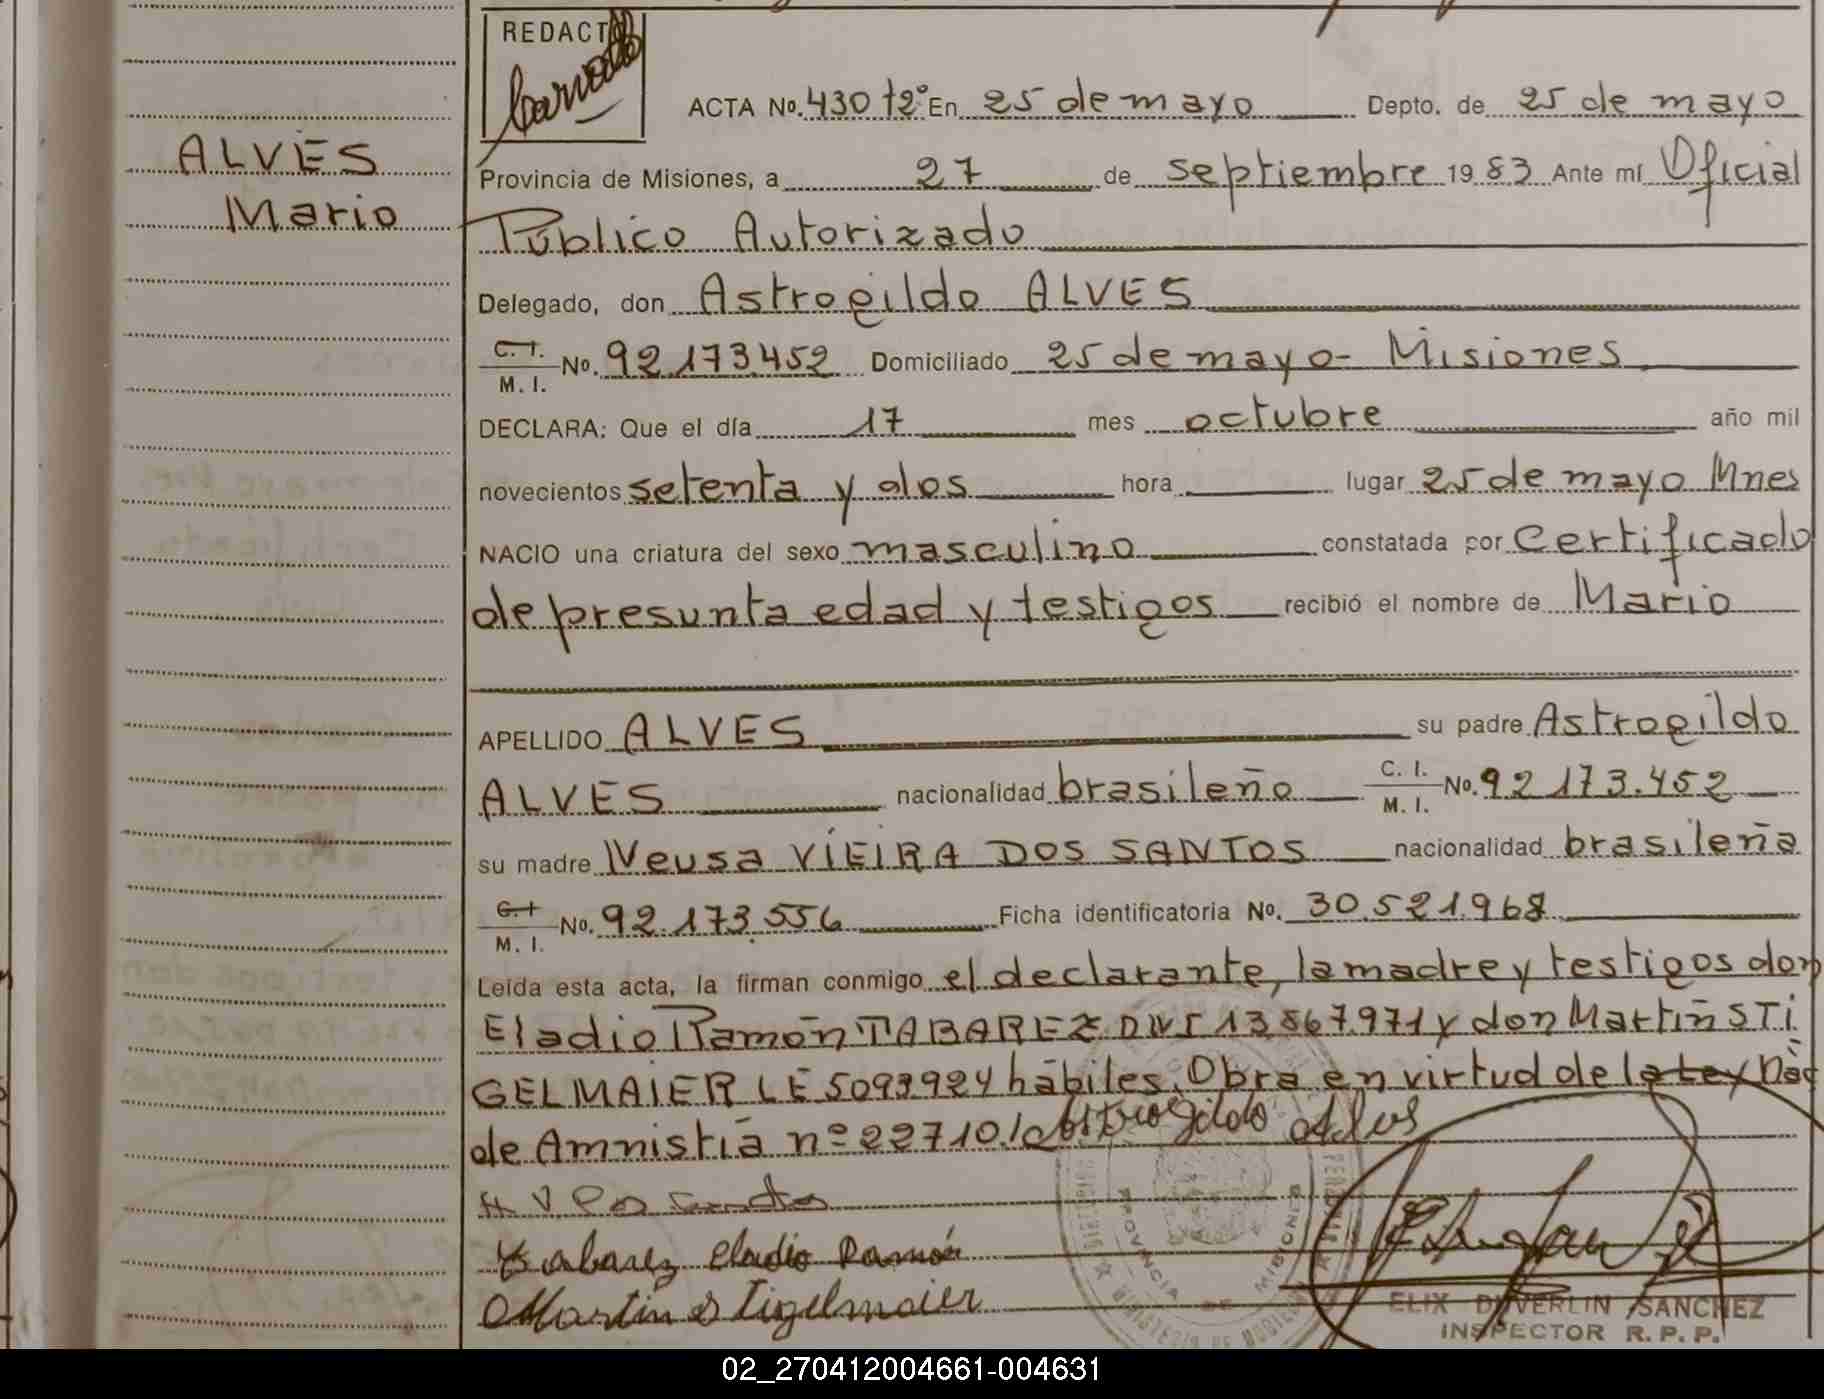 REDACTO
ACTA No. 430 t2° En 25 de mayo Depto. de 25 de mayo
ALVES
Mario
Provincia de Misiones, a 27 de septiembre 1983 Ante mí Oficial
Público Autorizado
Delegado, don Astrogildo ALVES
C. I. M. I. No. 92.173.452 Domiciliado 25 de mayo - Misiones
DECLARA: Que el día 17 mes octubre año mil
novecientos setenta y dos hora lugar 25 de mayo Mnes
NACIO una criatura del sexo masculino constatada por Certificado
de presunta edad y testigos recibió el nombre de Mario
APELLIDO ALVES su padre Astrogildo
ALVES nacionalidad brasileño C. I. M. I. No. 92.173.452
su madre Neusa VIEIRA DOS SANTOS nacionalidad brasileña
C. I. M. I. No. 92.173.556 Ficha identificatoria No. 30.521.968
Leída esta acta, la firman conmigo el declarante, la madre y testigos don
Eladio Ramón TABAREZ DNI 13.867.971 y don Martin STI
GELMAIER LE 5093924 hábiles. Obra en virtud de la ley Nac
de Amnistía nº 22710./ Astrogildo Alves
Tabarez Eladio Ramón
Martin Stigelmaier
PROVINCIA DE MISIONES
ELIX DUVERLIN SANCHEZ
INSPECTOR R. P. P.
02_270412004661-004631